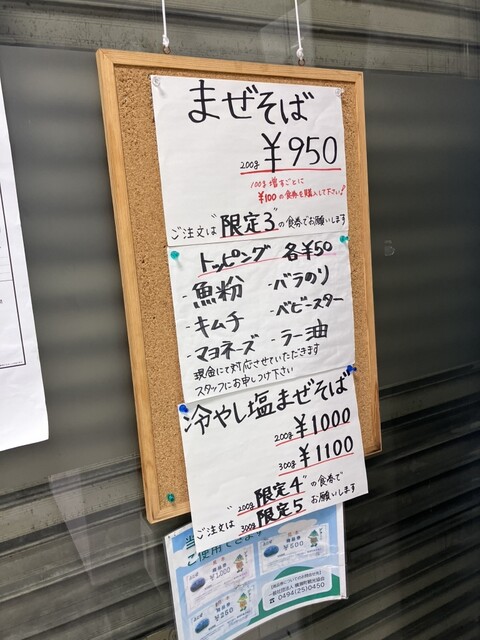 まぜそば
200g ¥950
100g増すごとに
¥100の食券を購入して下さい!
ご注文は"限定3"の食券でお願いします
トッピング 各¥50
・魚粉 ・バラのり
・キムチ ・ベビースター
・マヨネーズ ・ラー油
現金にて対応させていただきます
スタッフにお申しつけ下さい
冷やし塩まぜそば
200g ¥1000
300g ¥1100
ご注文は "200g 限定4 300g 限定5" の食券でお願いします
当
ご使用できます
¥1,000
¥500
¥250
0494(25)0450